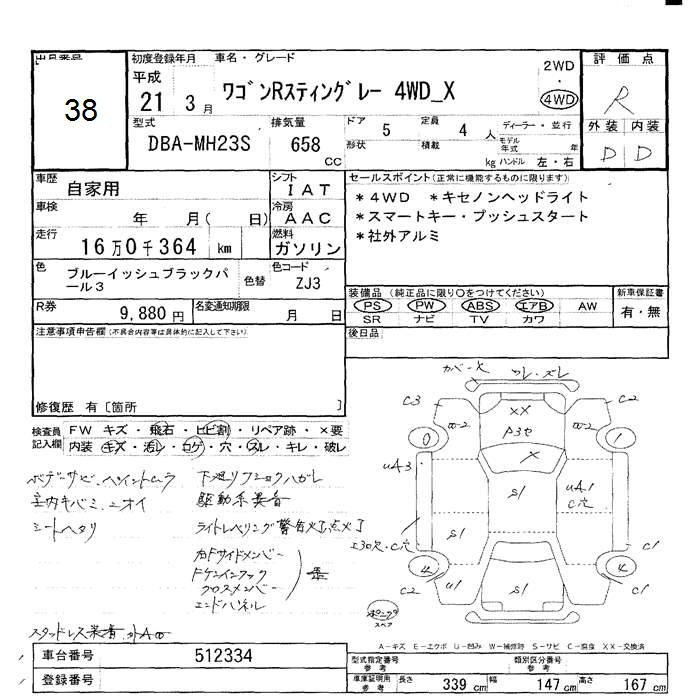 出品番号
38
初度登録年月
平成
21 3月
車名・グレード
ワゴンRスティングレー 4WD_X
2WD
・
4WD
評価点
R
外装 内装
D D
型式
DBA-MH23S
排気量
658
cc
ドア 5
定員 4 人
形状
積載 kg
ディーラー・並行
モデル年式 年
ハンドル 左・右
車歴 自家用
シフト
IAT
車検 年 月( 日)
冷房
AAC
走行 16万0千364 km
燃料
ガソリン
色 ブルーイッシュブラックパール3
色替
色コード
ZJ3
R券 9,880 円
名変通知期限 月 日
セールスポイント(正常に機能するものに限ります)
*4WD *キセノンヘッドライト
*スマートキー・プッシュスタート
*社外アルミ
装備品 (純正品に限り○をつけてください)
PS PW ABS エアB AW
SR ナビ TV カワ
新車保証書
有・無
後日品
注意事項申告欄(不具合内容等は具体的に記入して下さい)
修復歴 有〔箇所 〕
検査員記入欄
FW キズ・飛石・ヒビ割・リペア跡・×要
内装 キズ・汚レ・コゲ・穴・スレ・キレ・破レ
ボデーサビ、ペイントムラ
室内キバミ、ニオイ
シートヘタリ
下廻リフショクハガレ
駆動系異音
ライトレベリング警告灯点灯
右Fサイドメンバー
クロスメンバー
エンドパネル
カバー×
ワレ・ズレ
C3 C2
XX
W-2 W-2
P3セ
0 1
×
UA3
S1
UA1
C穴
エ30穴・C穴
S1
C1
4 4
C2 U1 S1 C1
スペア
A-キズ E-エクボ U-凹み W-補修跡 S-サビ C-腐食 XX-交換済
車台番号 512334
登録番号
型式指定番号
参考
類別区分番号
参考
車庫証明用
参考
長さ 339 cm
幅 147 cm
高さ 167 cm